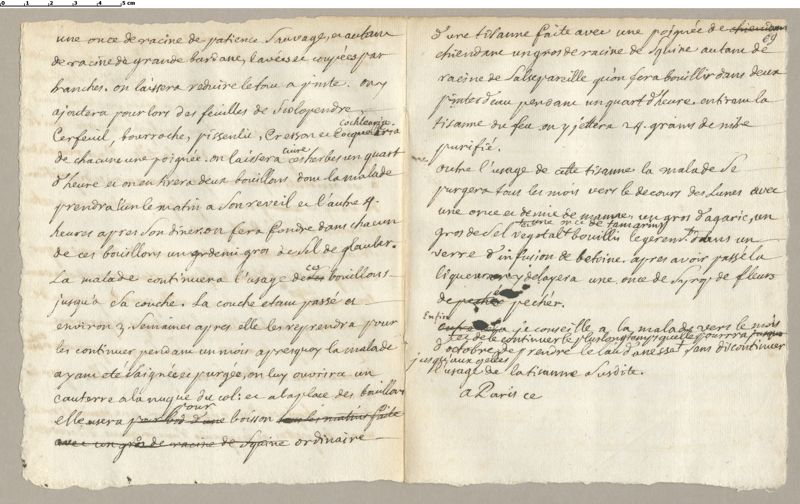 0 1 2 3 4 5 cm
une once de racine de patience sauvage, et autant
de racine de grande bardane, lavées et coupées par
tranches. on laissera reduire le tout a pinte. on y
ajoutera pour lors des feuilles de scolopendre,
Cerfeuil, bourroche, pissenlit, Cresson et
Cochlearia
de chacune une poignée. on laissera ces herbes un quart
cuire
d'heure et on en tirera deux bouillons dont la malade
prendra l'un le matin a son reveil et l'autre 4
heures apres son diner. on fera fondre dans chacun
de ces bouillons un demi gros de sel de glauber.
La malade continuera l'usage de bouillons
ces
jusqu'a sa couche. La couche etant passé et
environ 3 semaines apres elle les reprendra pour
les continuer pendant un mois apres quoy la malade
ayant eté saignée et purgée, on luy ouvrira un
cautere a la nuque du col: et a la place des bouillons
elle usera pour boisson
avec un gros de racine de squine ordinaire
69
d'une tisanne faite avec une poignée de chiendent
chiendent un gros de racine de squine autant de
racine de salsepareille qu'on fera bouillir dans deux
pintes d'eau pendant un quart d'heure. en tirant la
tisanne du feu on y jettera 24 grains de nitre
purifié.
Outre l'usage de cette tisanne la malade se
purgera tous les mois vers le decours des Lunes avec
une once et demie de manne, un gros d'agaric, un
once de tamarins
gros de sel vegetal bouillis legerem.t dans un
verre d'infusion de betoine. apres avoir passé la
liqueur on y delayera une once de syrop de fleurs
de pechér.
Enfin
je conseille a la malade vers le mois
et de le continuer le plus longtemps qu'elle pourra
d'octobre de prendre le lait d'anesse sans discontinuer
jusqu'aux gelées
l'usage de la tisanne susdite.
a Paris ce